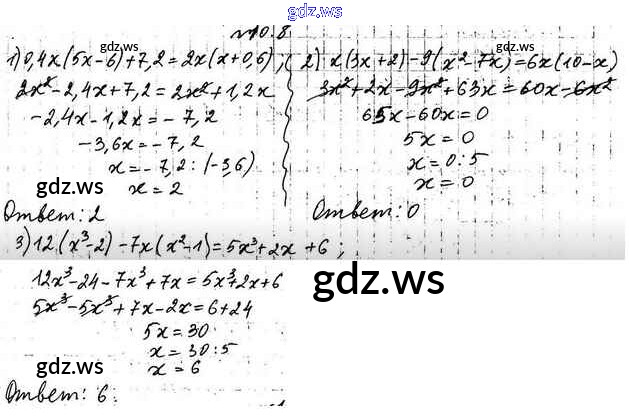 gdz.ws
№10.8
1) 0,4x(5x-6)+7,2=2x(x+0,6);
2x²-2,4x+7,2=2x²+1,2x
-2,4x-1,2x=-7,2
-3,6x=-7,2
x=-7,2:(-3,6)
x=2
gdz.ws
Ответ: 2
2) x(3x+2)-9(x²-7x)=6x(10-x)
3x²+2x-9x²+63x=60x-6x²
65x-60x=0
5x=0
x=0:5
x=0
gdz.ws
Ответ: 0
3) 12(x³-2)-7x(x²-1)=5x³+2x+6;
12x³-24-7x³+7x=5x³+2x+6
5x³-5x³+7x-2x=6+24
5x=30
x=30:5
x=6
gdz.ws
gdz.ws
Ответ: 6.